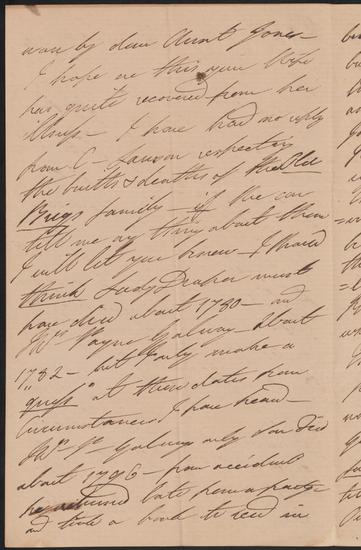 worn by dear Aunt Jones
I hope ere this your Wife
has quite recovered from her
illness — I have had no reply
from C — Lawson respecting
the births & deaths of the Old
Brigs family — if she can
tell me any thing about them
I will let you know — I should
think Lady Draper must
have died about 1780 — and
Mrs Payne Galwey about
1782 — but I only make a
"guess" at these dates from
Circumstances I have heard —
Mrs P. Galweys only Son died
about 1796 — from accident
he returned late from a party
and took a book to read in